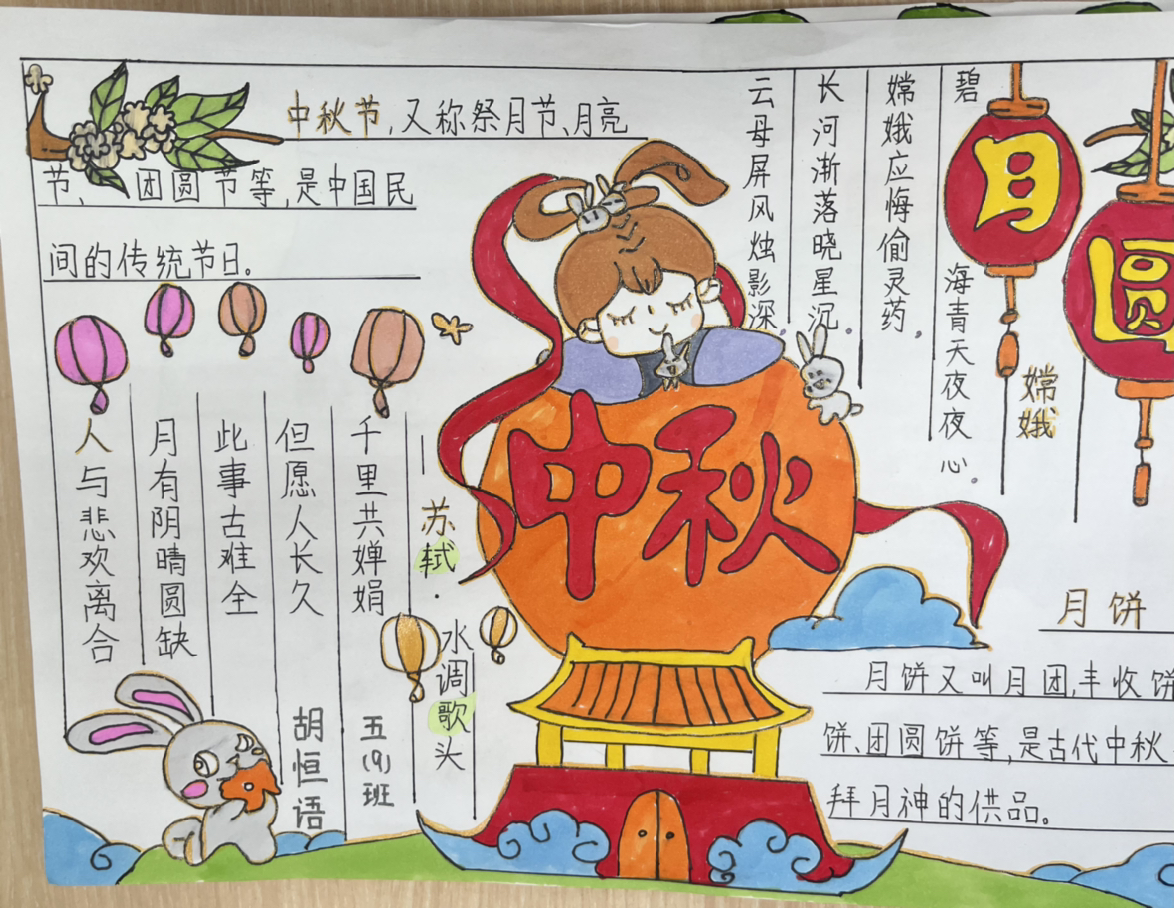 中秋节,又称祭月节、月亮
节、、团圆节等,是中国民
间的传统节日。
人与悲欢离合
月有阴晴圆缺
此事古难全
但愿人长久
千里共婵娟
苏轼·水调歌头
胡恒语
五(9)班
中秋
云母屏风烛影深。
长河渐落晓星沉。
嫦娥应悔偷灵药,
碧海青天夜夜心。
嫦娥
月圆
月饼
月饼又叫月团,丰收饼
饼、团圆饼等,是古代中秋
拜月神的供品。